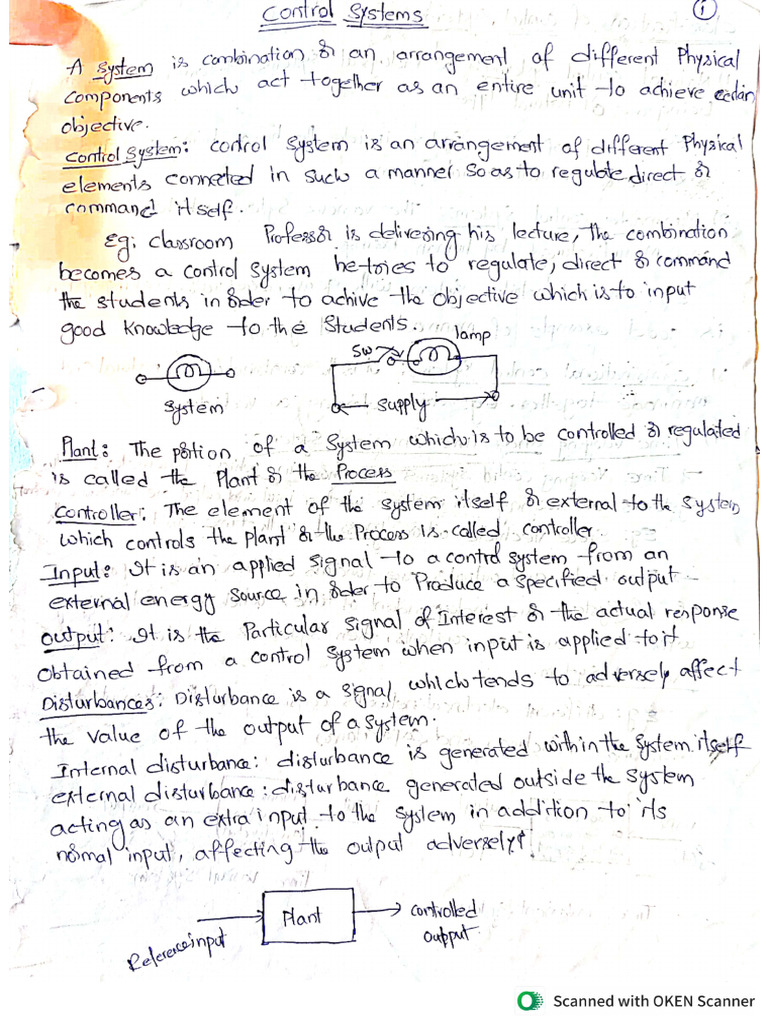 Control Systems
1
A System is combination or an arrangement of different Physical
components which act together as an entire unit to achieve certain
objective.
Control System: control System is an arrangement of different Physical
elements connected in such a manner so as to regulate direct or
command itself.
Eg: classroom Professor is delivering his lecture, the combination
becomes a control system he tries to regulate, direct or command
the students in order to achive the objective which is to input
good knowledge to the Students.
lamp
SW
System
Supply
Plant: The portion of a System which is to be controlled or regulated
is called the Plant or the Process
Controller: The element of the system itself or external to the system
which controls the Plant or the Process is called controller
Input: It is an applied signal to a control system from an
external energy source in order to Produce a specified output
output: It is the Particular signal of Interest or the actual response
obtained from a control system when input is applied to it
Disturbances: Disturbance is a signal which tends to adversely affect
the value of the output of a system.
Internal disturbance: disturbance is generated within the system itself
external disturbance: disturbance generated outside the system
acting as an extra input to the system in addition to its
normal input, affecting the output adversely
Plant
controlled
output
Reference input
Scanned with OKEN Scanner